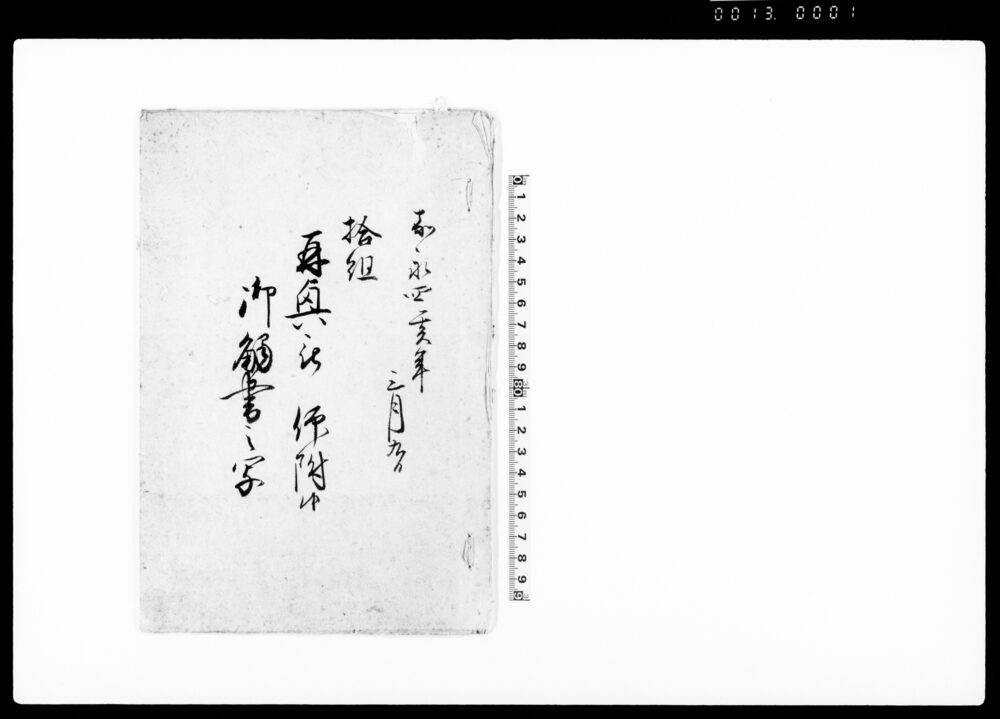 0013. 0001
嘉永四亥年
三月九日
拾組
再興被 仰附候
御觸書之写
0 1 2 3 4 5 6 7 8 9 10 1 2 3 4 5 6 7 8 9